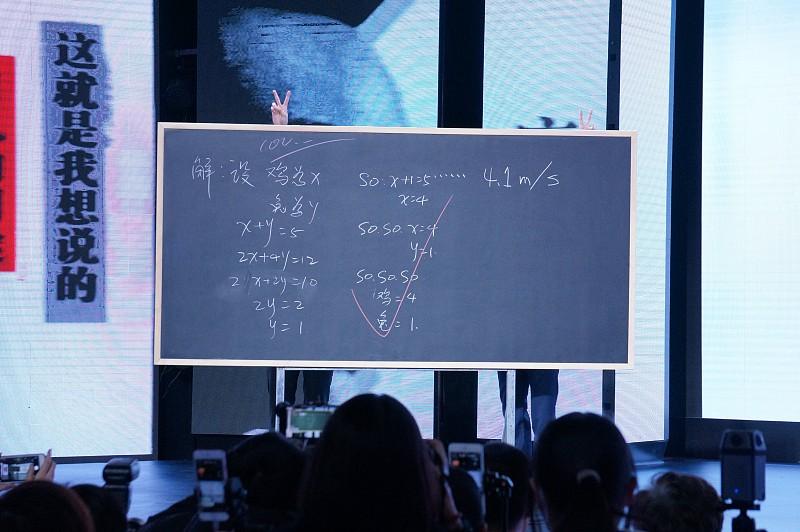 这就是我想说的
100
解:设 鸡为x
兔为y
x+y=5
2x+4y=12
2x+2y=10
2y=2
y=1
So: x+1=5······
x=4
So.So. x=4
y=1.
So.So.So
鸡=4
兔=1.
4.1m/s